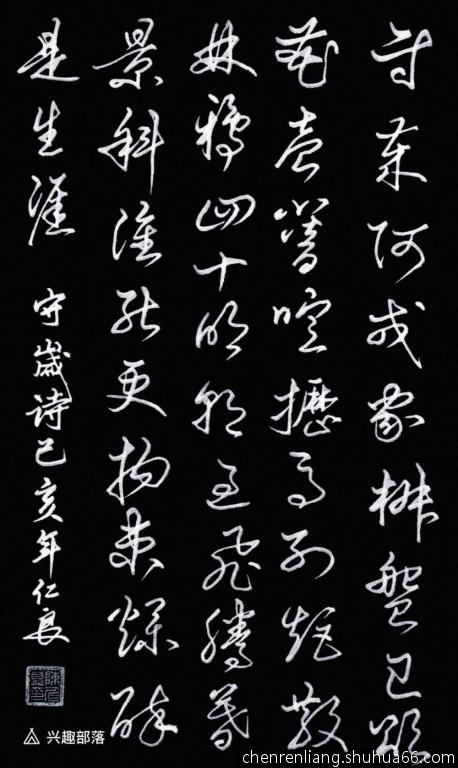 守歲阿戎家椒盤已頌
花盍簪喧櫪馬列炬散
林鴉四十明朝過飛騰暮
景斜誰能更拘束爛醉
是生涯 守歲詩己亥年仁良
兴趣部落
chenrenliang.shuhua66.com